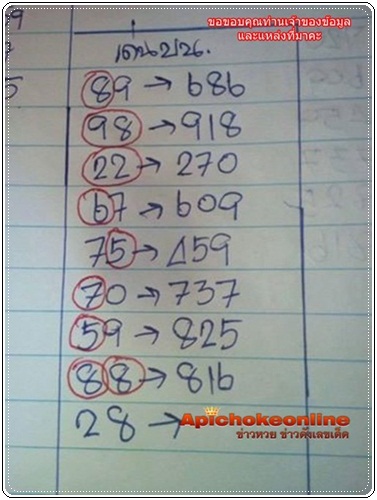 ขอขอบคุณท่านเจ้าของข้อมูล
และแหล่งที่มาคะ
เด่นบน.
89 → 686
98 → 918
22 → 270
67 → 609
75 → 459
70 → 737
59 → 825
88 → 816
28 →
Apichokeonline
ข่าวหวย ข่าวดังเลขเด็ด